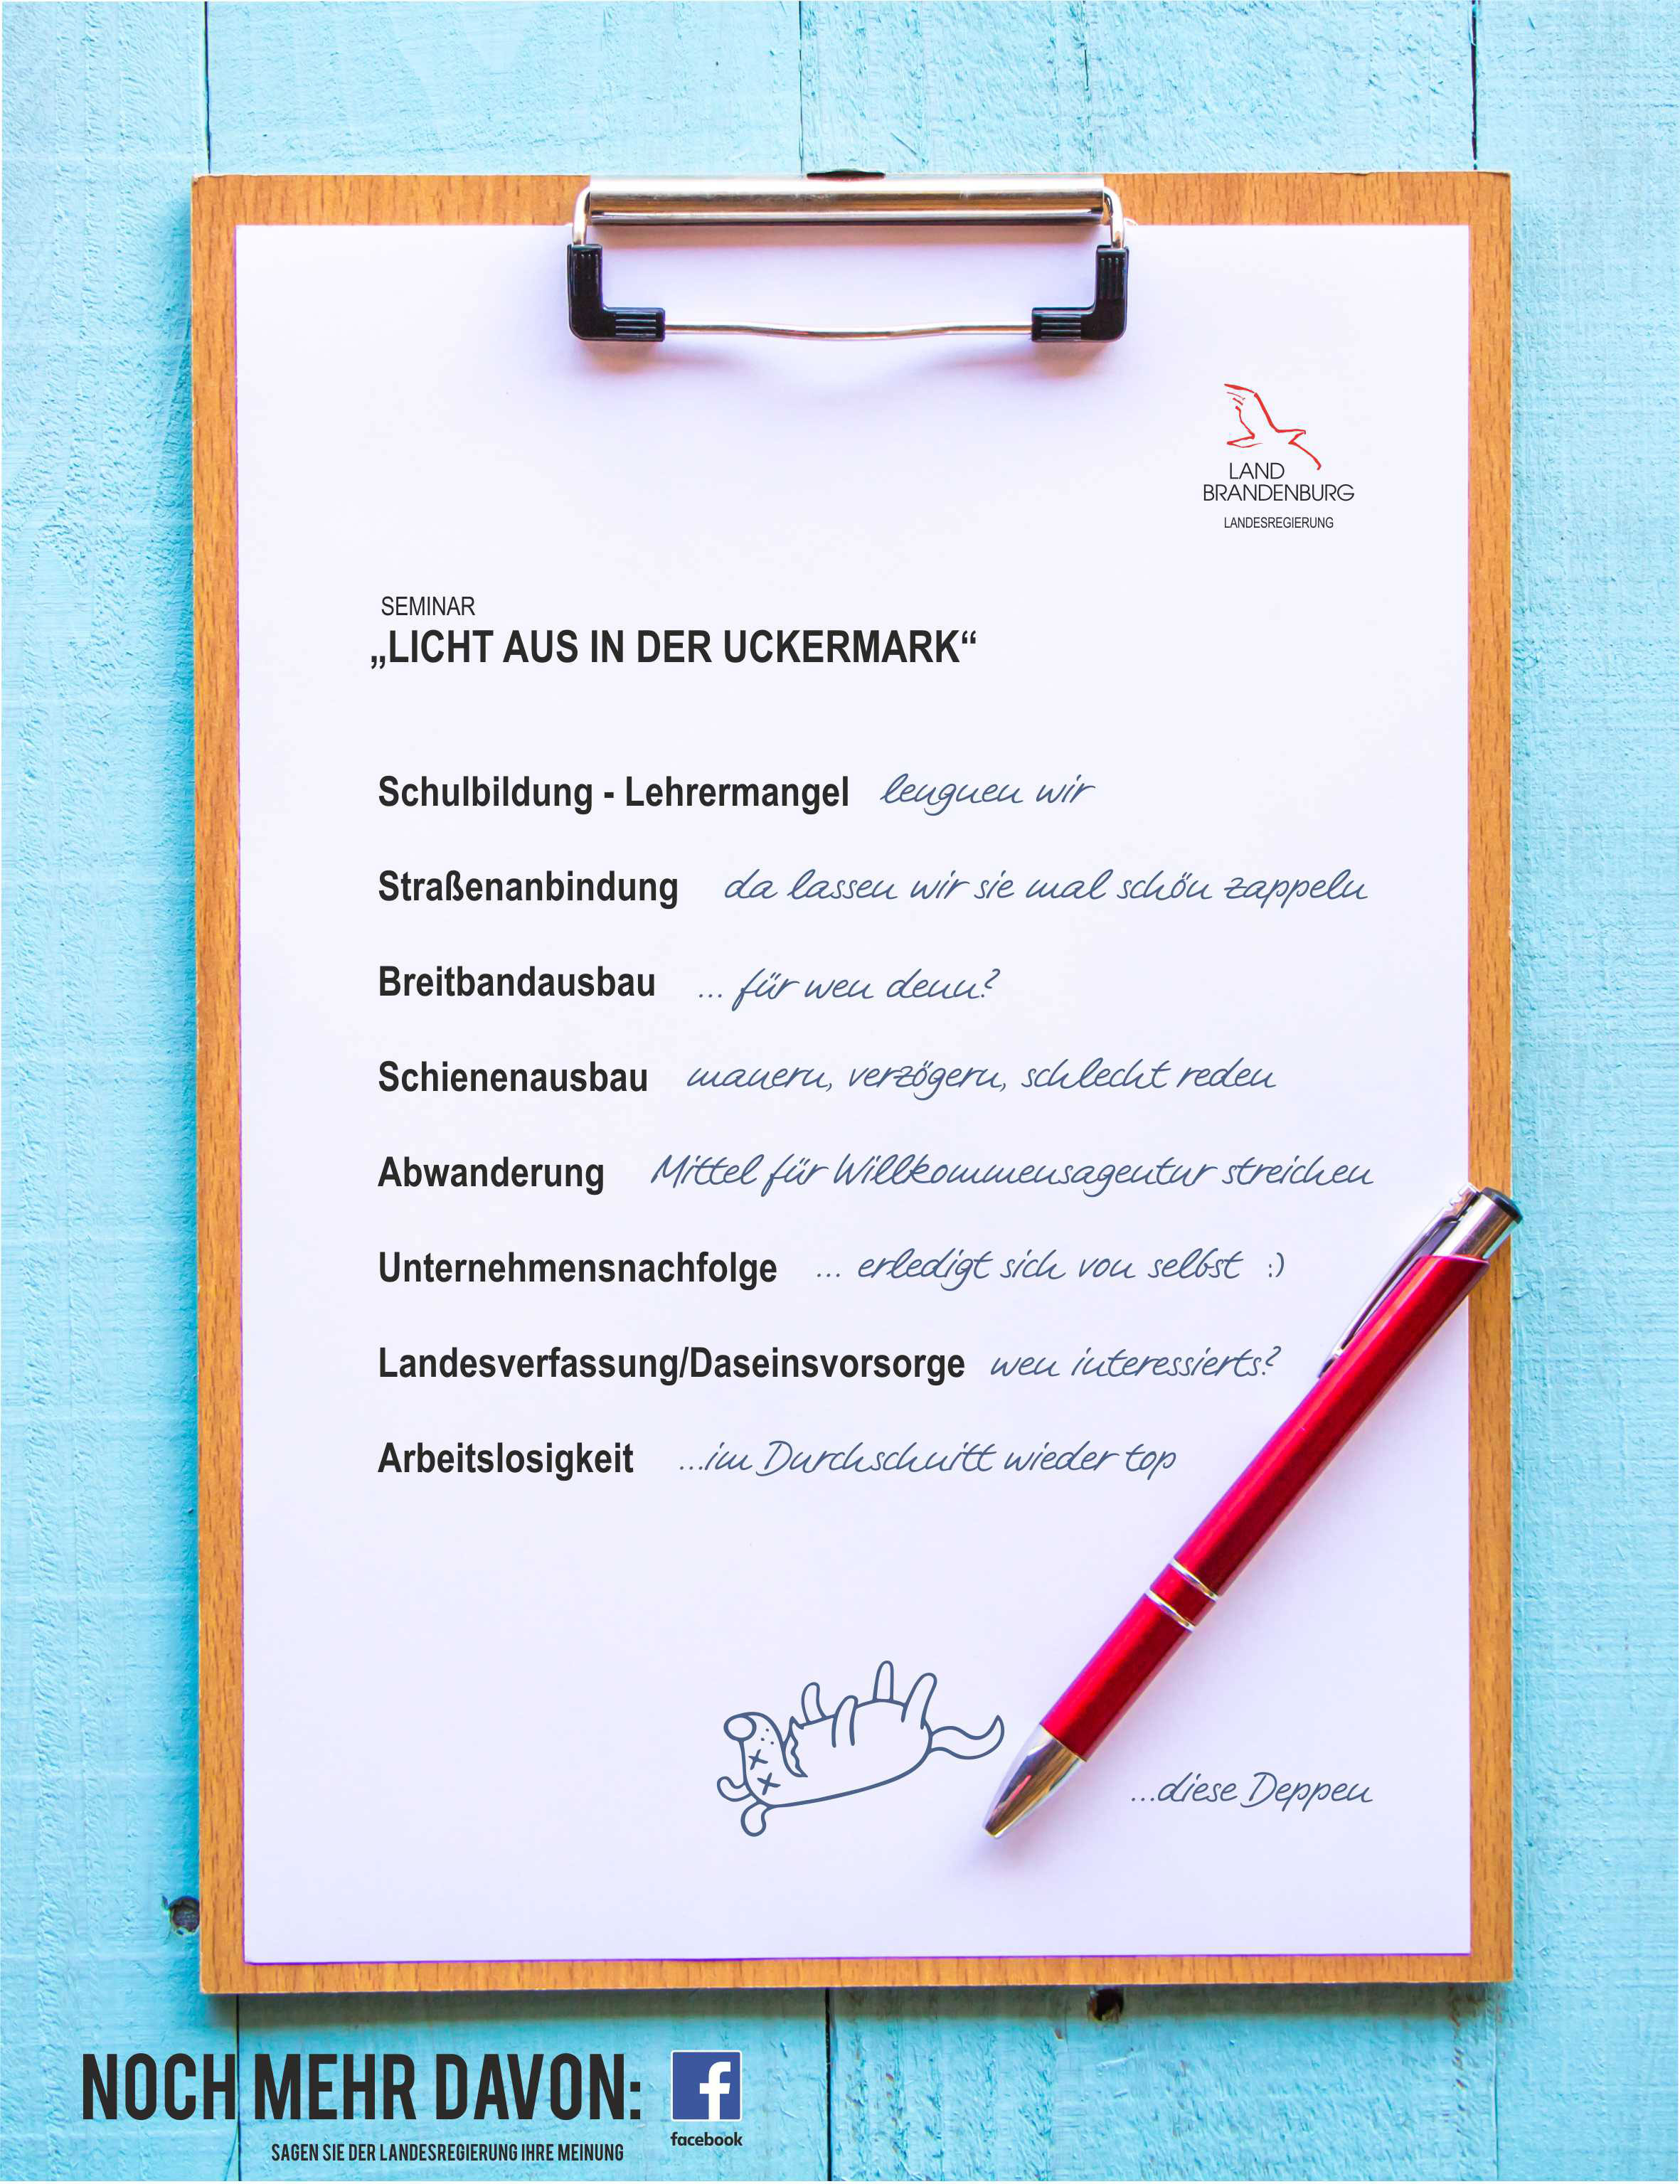 LAND
BRANDENBURG
LANDESREGIERUNG
SEMINAR
„LICHT AUS IN DER UCKERMARK“
Schulbildung - Lehrermangel leugnen wir
Straßenanbindung da lassen wir sie mal schön zappeln
Breitbandausbau ... für wen denn?
Schienenausbau mauern, verzögern, schlecht reden
Abwanderung Mittel für Willkommensagentur streichen
Unternehmensnachfolge ... erledigt sich von selbst :)
Landesverfassung/Daseinsvorsorge wen interessierts?
Arbeitslosigkeit ...im Durchschnitt wieder top
...diese Deppen
NOCH MEHR DAVON:
f
facebook
SAGEN SIE DER LANDESREGIERUNG IHRE MEINUNG